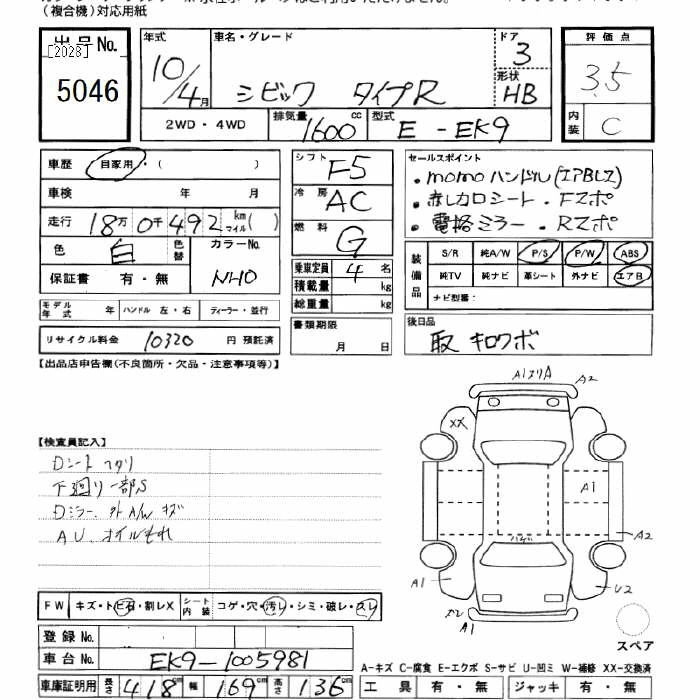 (複合機)対応用紙
出品No. [2028] 5046
年式 10/4月 車名・グレード シビック タイプR ドア 3 形状 HB
2WD・4WD 排気量 1600cc 型式 E-EK9
評価点 3.5
内装 C
車歴 自家用・( )
車検 年 月
走行 18万0千492 km マイル( )
色 白 色替 カラーNo. NH0
保証書 有・無
モデル年式 年 ハンドル 左・右 ディーラー・並行
リサイクル料金 10320 円 預託済
シフト F5
冷房 AC
燃料 G
乗車定員 4 名
積載量 kg
総重量 kg
書類期限 月 日
セールスポイント
・momoハンドル(エアBレス)
・赤レカロシート・Fスポ
・電格ミラー・Rスポ
装備品 S/R 純A/W P/S P/W ABS
純TV 純ナビ 革シート 外ナビ エアB
ナビ型番:
後日品
取 キロクボ
【出品店申告欄(不良箇所・欠品・注意事項等)】
【検査員記入】
Dシート
下廻り一部S
Dミラー、外A/W キズ
オイルもれ
A2
XX
A1
A2
A1
U2
A1
スペア
FW キズ・トビ石・割レX シート内装 コゲ・穴・汚レ・シミ・破レ・スレ
登録No.
車台No. EK9-1005981
車庫証明用 長さ 418cm 幅 169cm 高さ 136cm
A-キズ C-腐食 E-エクボ S-サビ U-凹ミ W-補修 XX-交換済
工具 有・無 ジャッキ 有・無